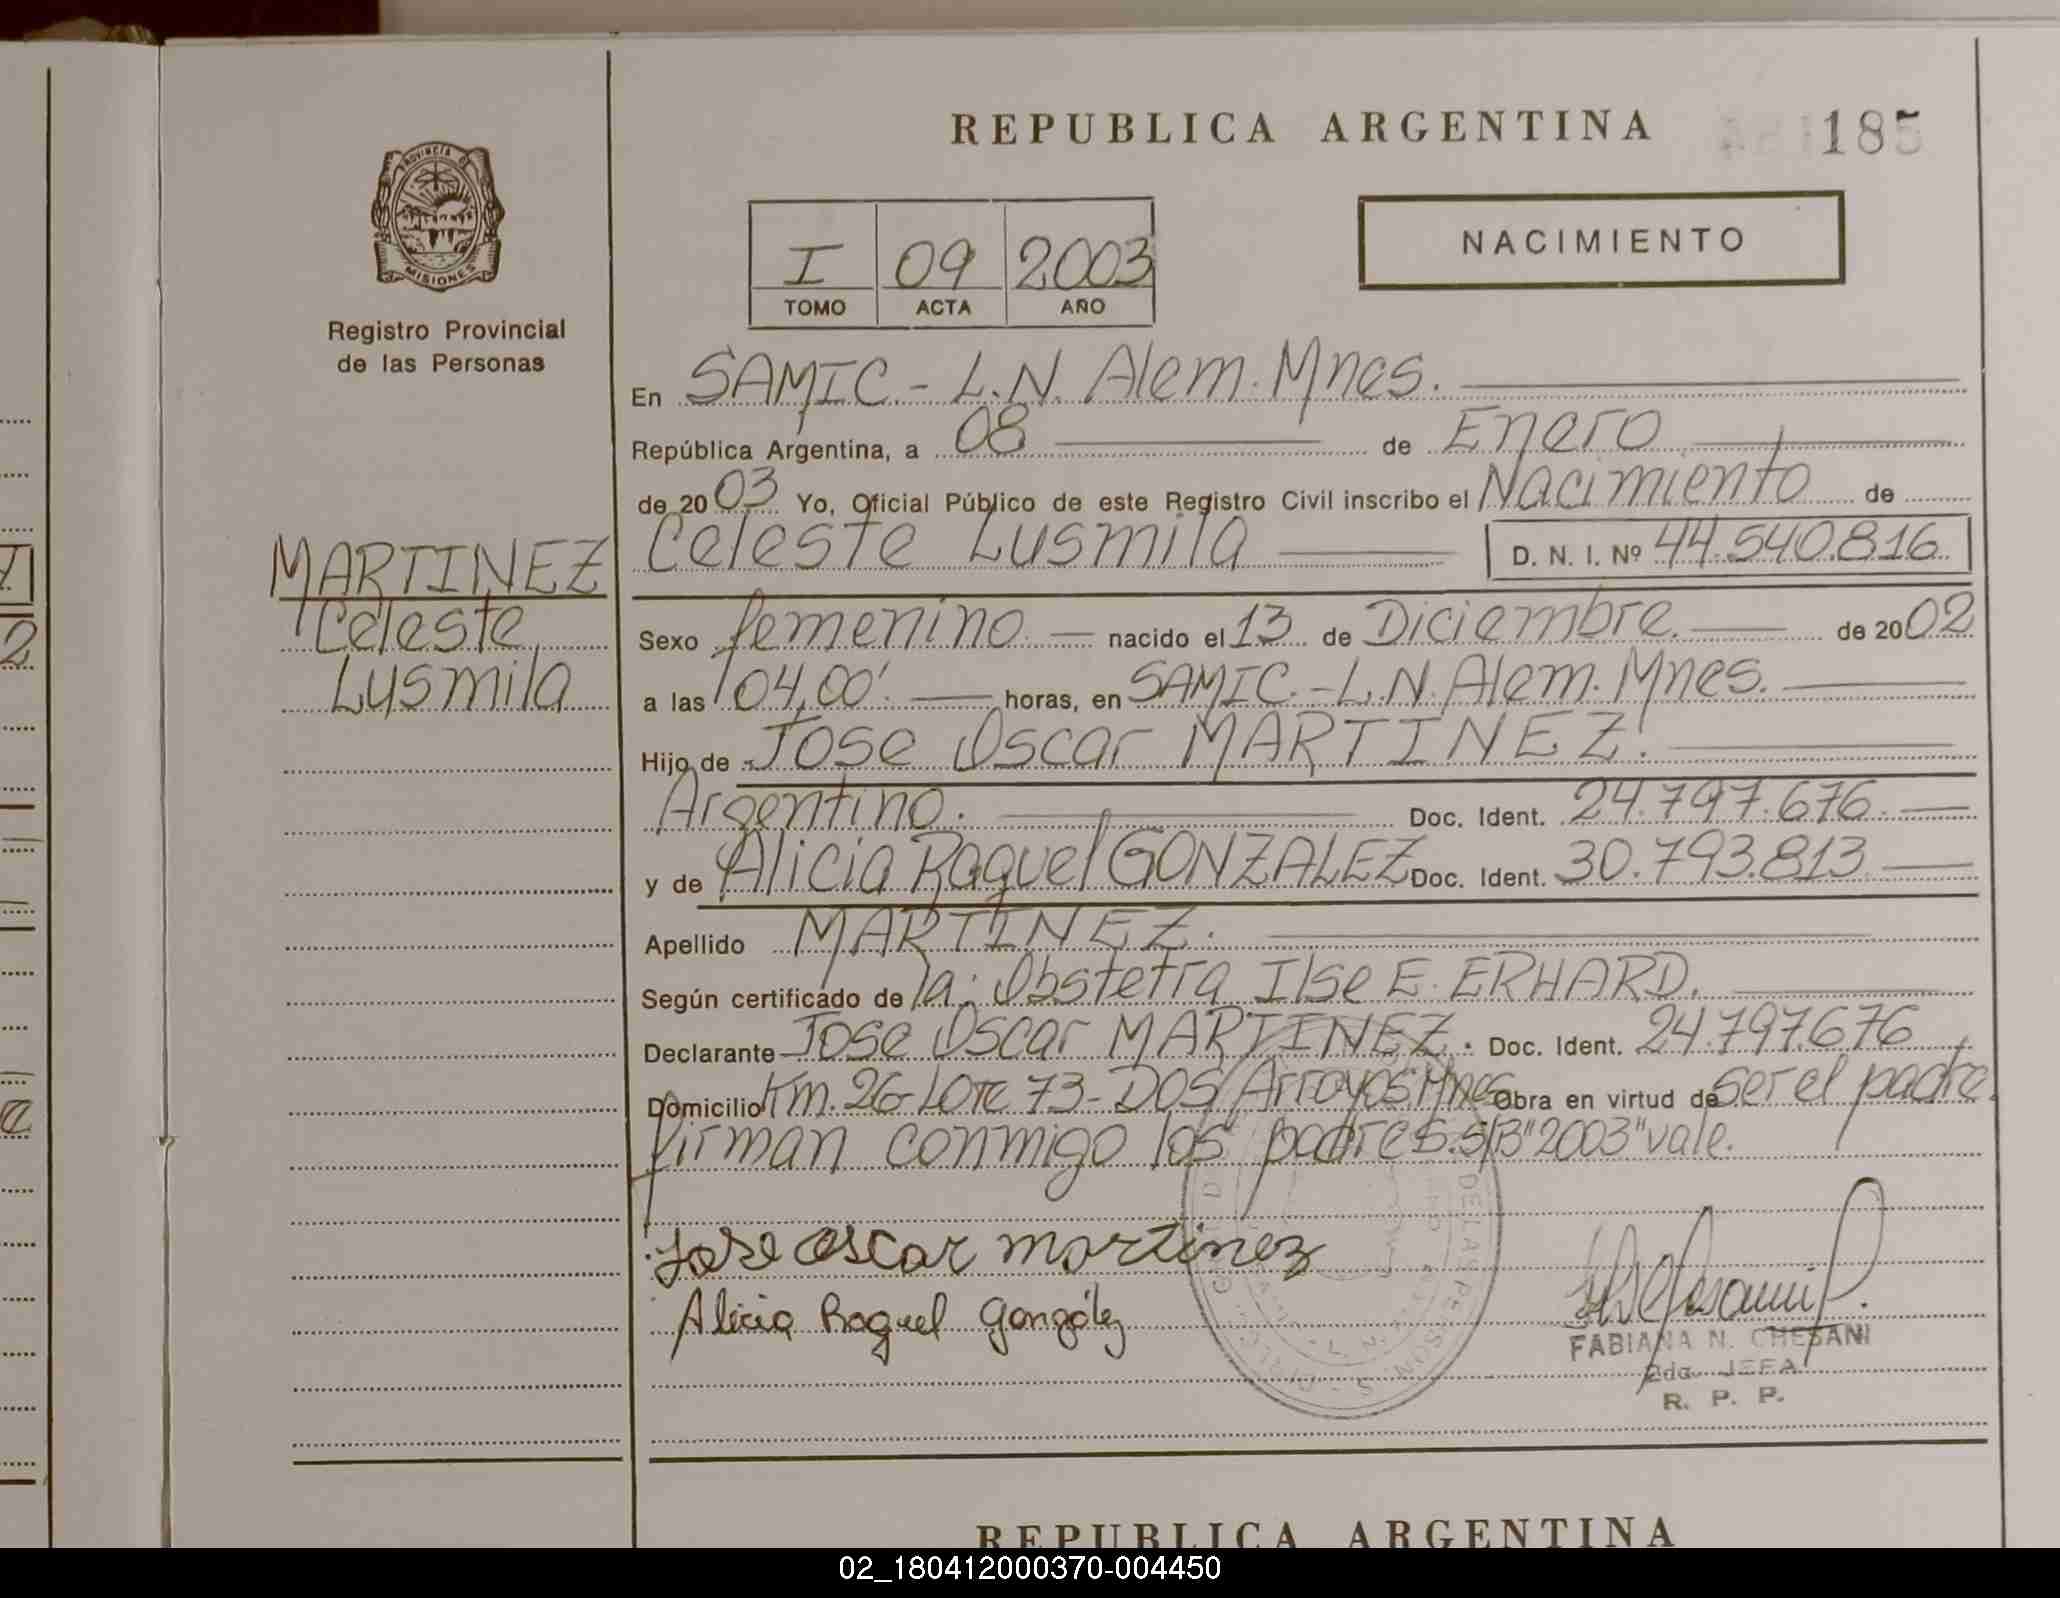 REPUBLICA ARGENTINA
185
PROVINCIA DE
MISIONES
Registro Provincial
de las Personas
I 09 2003
TOMO ACTA AÑO
NACIMIENTO
En SAMIC.- L.N. Alem. Mnes.
República Argentina, a 08 de Enero
de 2003 Yo, Oficial Público de este Registro Civil inscribo el Nacimiento de
Celeste Lusmila D. N. I. Nº 44.540.816
MARTINEZ
Celeste
Lusmila
Sexo femenino. nacido el 13 de Diciembre. de 2002
a las 04,00'. horas, en SAMIC.-L.N. Alem. Mnes.
Hijo de Jose Oscar MARTINEZ.
Argentino. Doc. Ident. 24.797.676
y de Alicia Raquel GONZALEZ Doc. Ident. 30.793.813
Apellido MARTINEZ.
Según certificado de la: Obstetra Ilse E. ERHARD.
Declarante Jose Oscar MARTINEZ. Doc. Ident. 24.797.676
Domicilio Km. 26-Lote 73-DOS Arroyos. Mnes Obra en virtud de ser el padre.
firman conmigo los padres. S/B "2003" vale.
Jose oscar martinez
Alicia Raquel González
FABIANA N. CHESANI
2da. JEFA
R. P. P.
REPUBLICA ARGENTINA
02_180412000370-004450